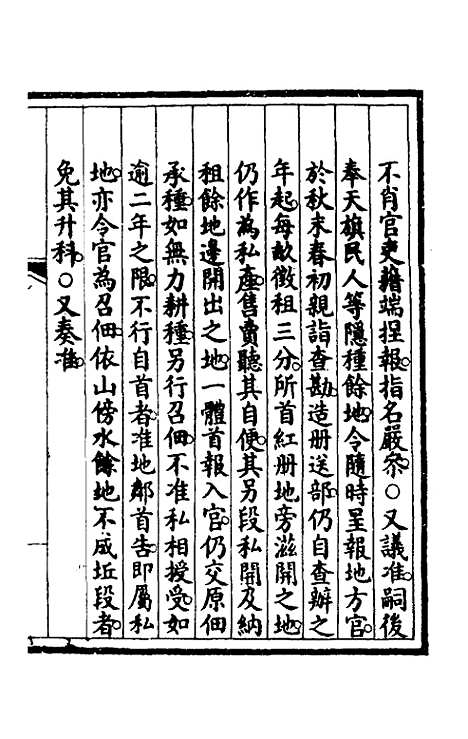 不肖官吏藉端捏報指名嚴參○又議准嗣後
奉天旗民人等隱種餘地令隨時呈報地方官
於秋末春初親詣查勘造册送部仍自查辦之
年起每畝徵租三分所首紅册地旁滋開之地
仍作為私產售賣聽其自便其另段私開及納
租餘地邊開出之地一體首報入官仍交原佃
承種如無力耕種另行召佃不准私相授受如
逾二年之限不行自首者准地鄰首告即屬私
地亦令官為召佃依山傍水餘地不成坵段者
免其升科○又奏准